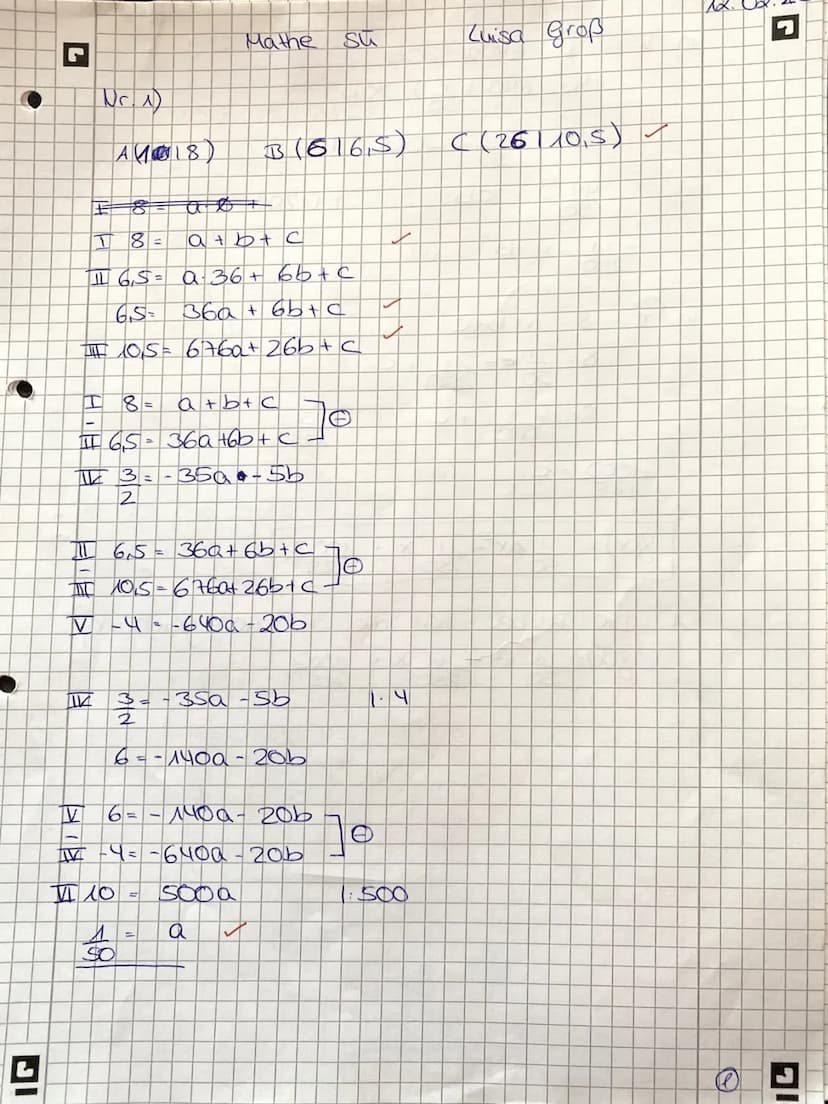 Mathe SÜ Luisa Groß
Nr. 1)
A(1|8) B(6|6,5) C(26|10,5) ✓
I 8 = a · +
I 8 = a + b + c ✓
II 6,5 = a·36 + 6b + c
6,5 = 36a + 6b + c ✓
III 10,5 = 676a + 26b + c ✓
I 8 = a + b + c
-
II 6,5 = 36a + 6b + c
IV 3/2 = -35a - 5b
II 6,5 = 36a + 6b + c
-
III 10,5 = 676a + 26b + c
V -4 = -640a - 20b
IV 3/2 = -35a - 5b |·4
6 = -140a - 20b
V 6 = -140a - 20b
-
IV -4 = -640a - 20b
VI 10 = 500a |:500
1/50 = a ✓